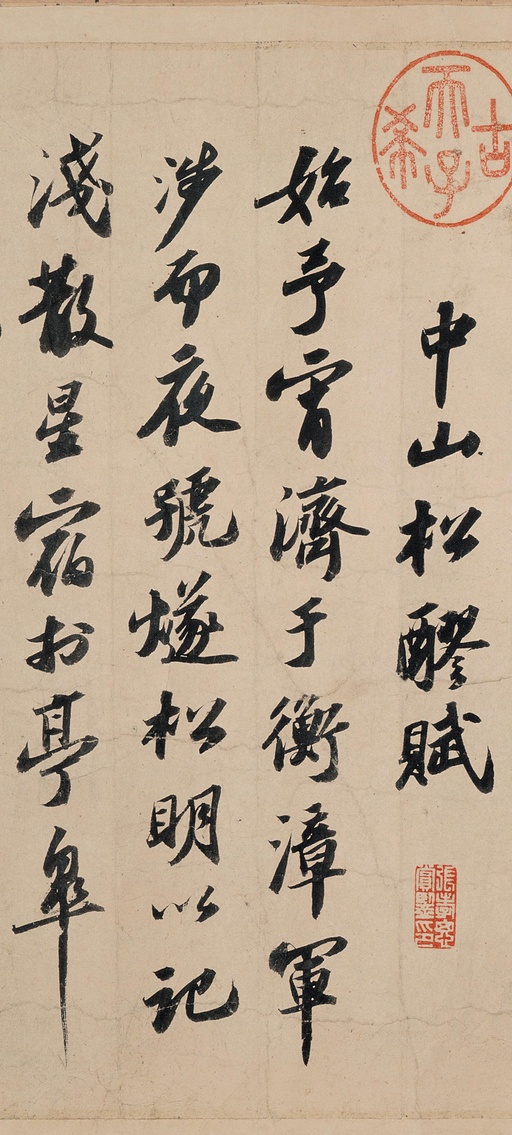 中山松醪賦
始予宵濟于衡漳軍
涉而夜號燧松明以記
淺散星宿於亭皐
古希天子